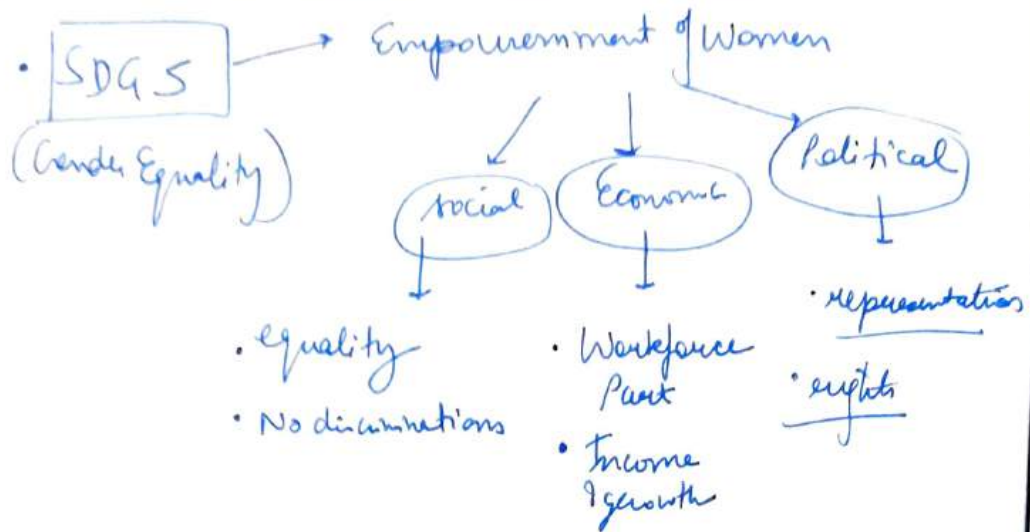 • SDG 5 → Empowerment of Women
(Gender Equality)
Social
Economic
Political
• equality
• No discriminations
• Workforce
Part
• Income
& growth
• representation
• rights